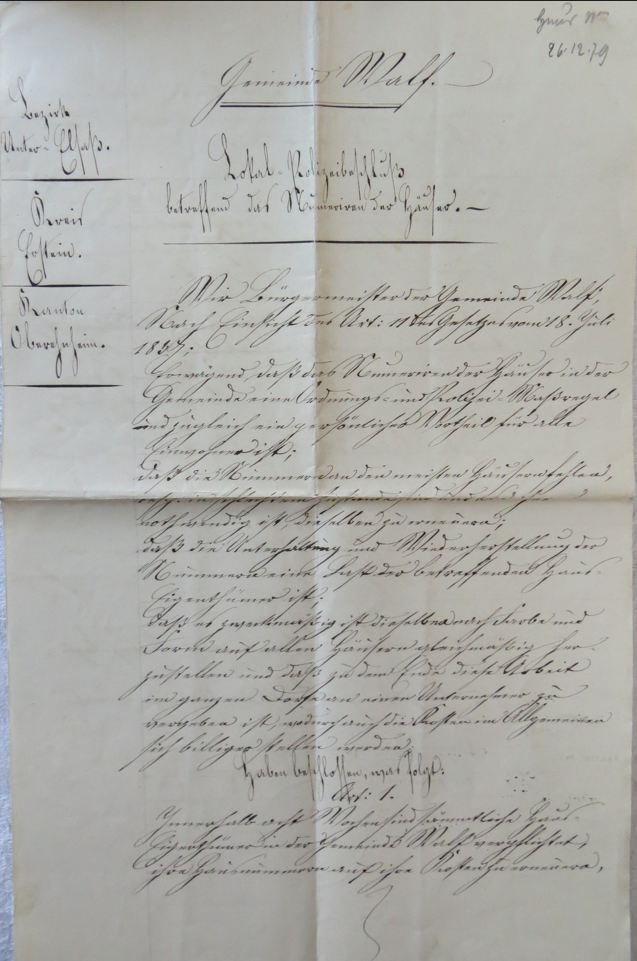 26.12.79
Gemeinde Walf.
Bezirk
Unter-Elsaß.
Kreis
Erstein.
Kanton
Oberehnheim.
Lokal-Polizeibeschluß
betreffend das Numeriren der Häuser.
Wir Bürgermeister der Gemeinde Walf,
Nach Einsicht des Art: 11 des Gesetzes vom 18. Juli
1837;
Erwägend, daß das Numeriren der Häuser in der
Gemeinde eine Ordnungs- und Polizei-Maßregel
und zugleich ein persönliches Vortheil für alle
Einwohner ist;
daß die Nummern an den meisten Häusern fehlen,
nothwendig ist, dieselben zu erneuern;
daß die Unterhaltung und Wiederherstellung der
Nummern eine Last der betreffenden Haus-
Eigenthümer ist;
daß es zweckmäßig ist dieselben nach Farbe und
Form auf allen Häusern gleichmäßig her-
zustellen und daß zu dem Ende diese Arbeit
im ganzen Dorfe an einen Unternehmer zu
vergeben ist, wodurch auch die Kosten im Allgemeinen
sich billiger stellen werden.
Haben beschlossen, was folgt:
Art: 1.
Innerhalb acht Wochen sind sämmtliche Haus-
Eigenthümer in der Gemeinde Walf verpflichtet,
ihre Hausnummern auf ihre Kosten zu erneuern,